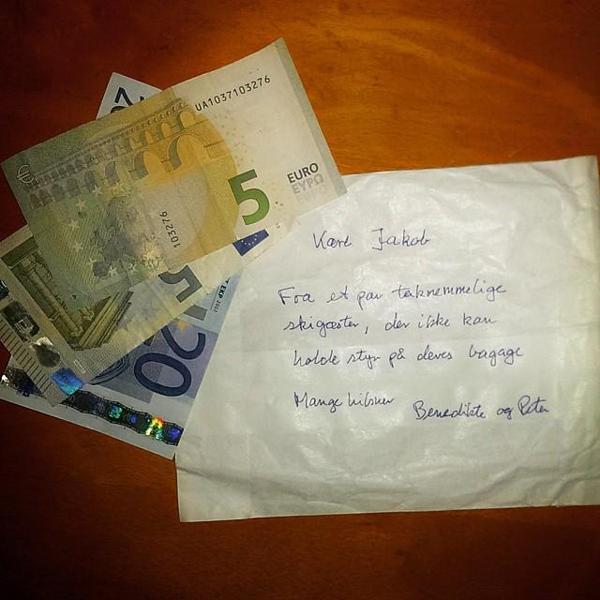 UA1037103276
EURO
ΕΥΡΩ
5
103276
20
Kære Jakob
Fra et par taknemmelige
skigæster, der ikke kan
holde styr på deres bagage
Mange hilsner Benedikte og Peter